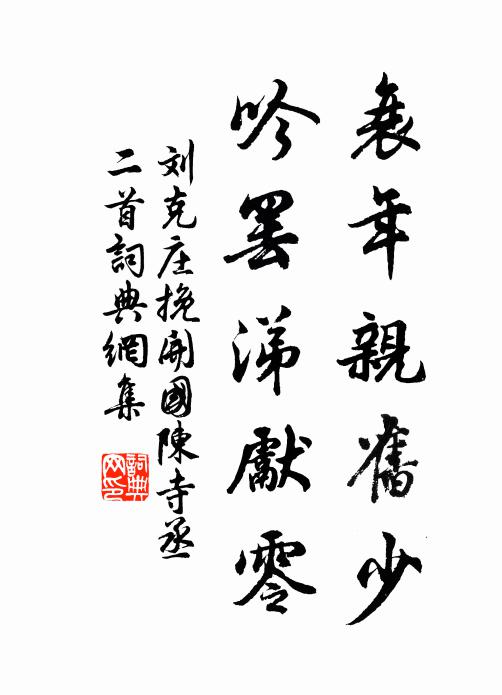 衰年親舊少
吟罷涕獻零
刘克庄挽開國陳寺丞
二首詞典網集
詞典
网印